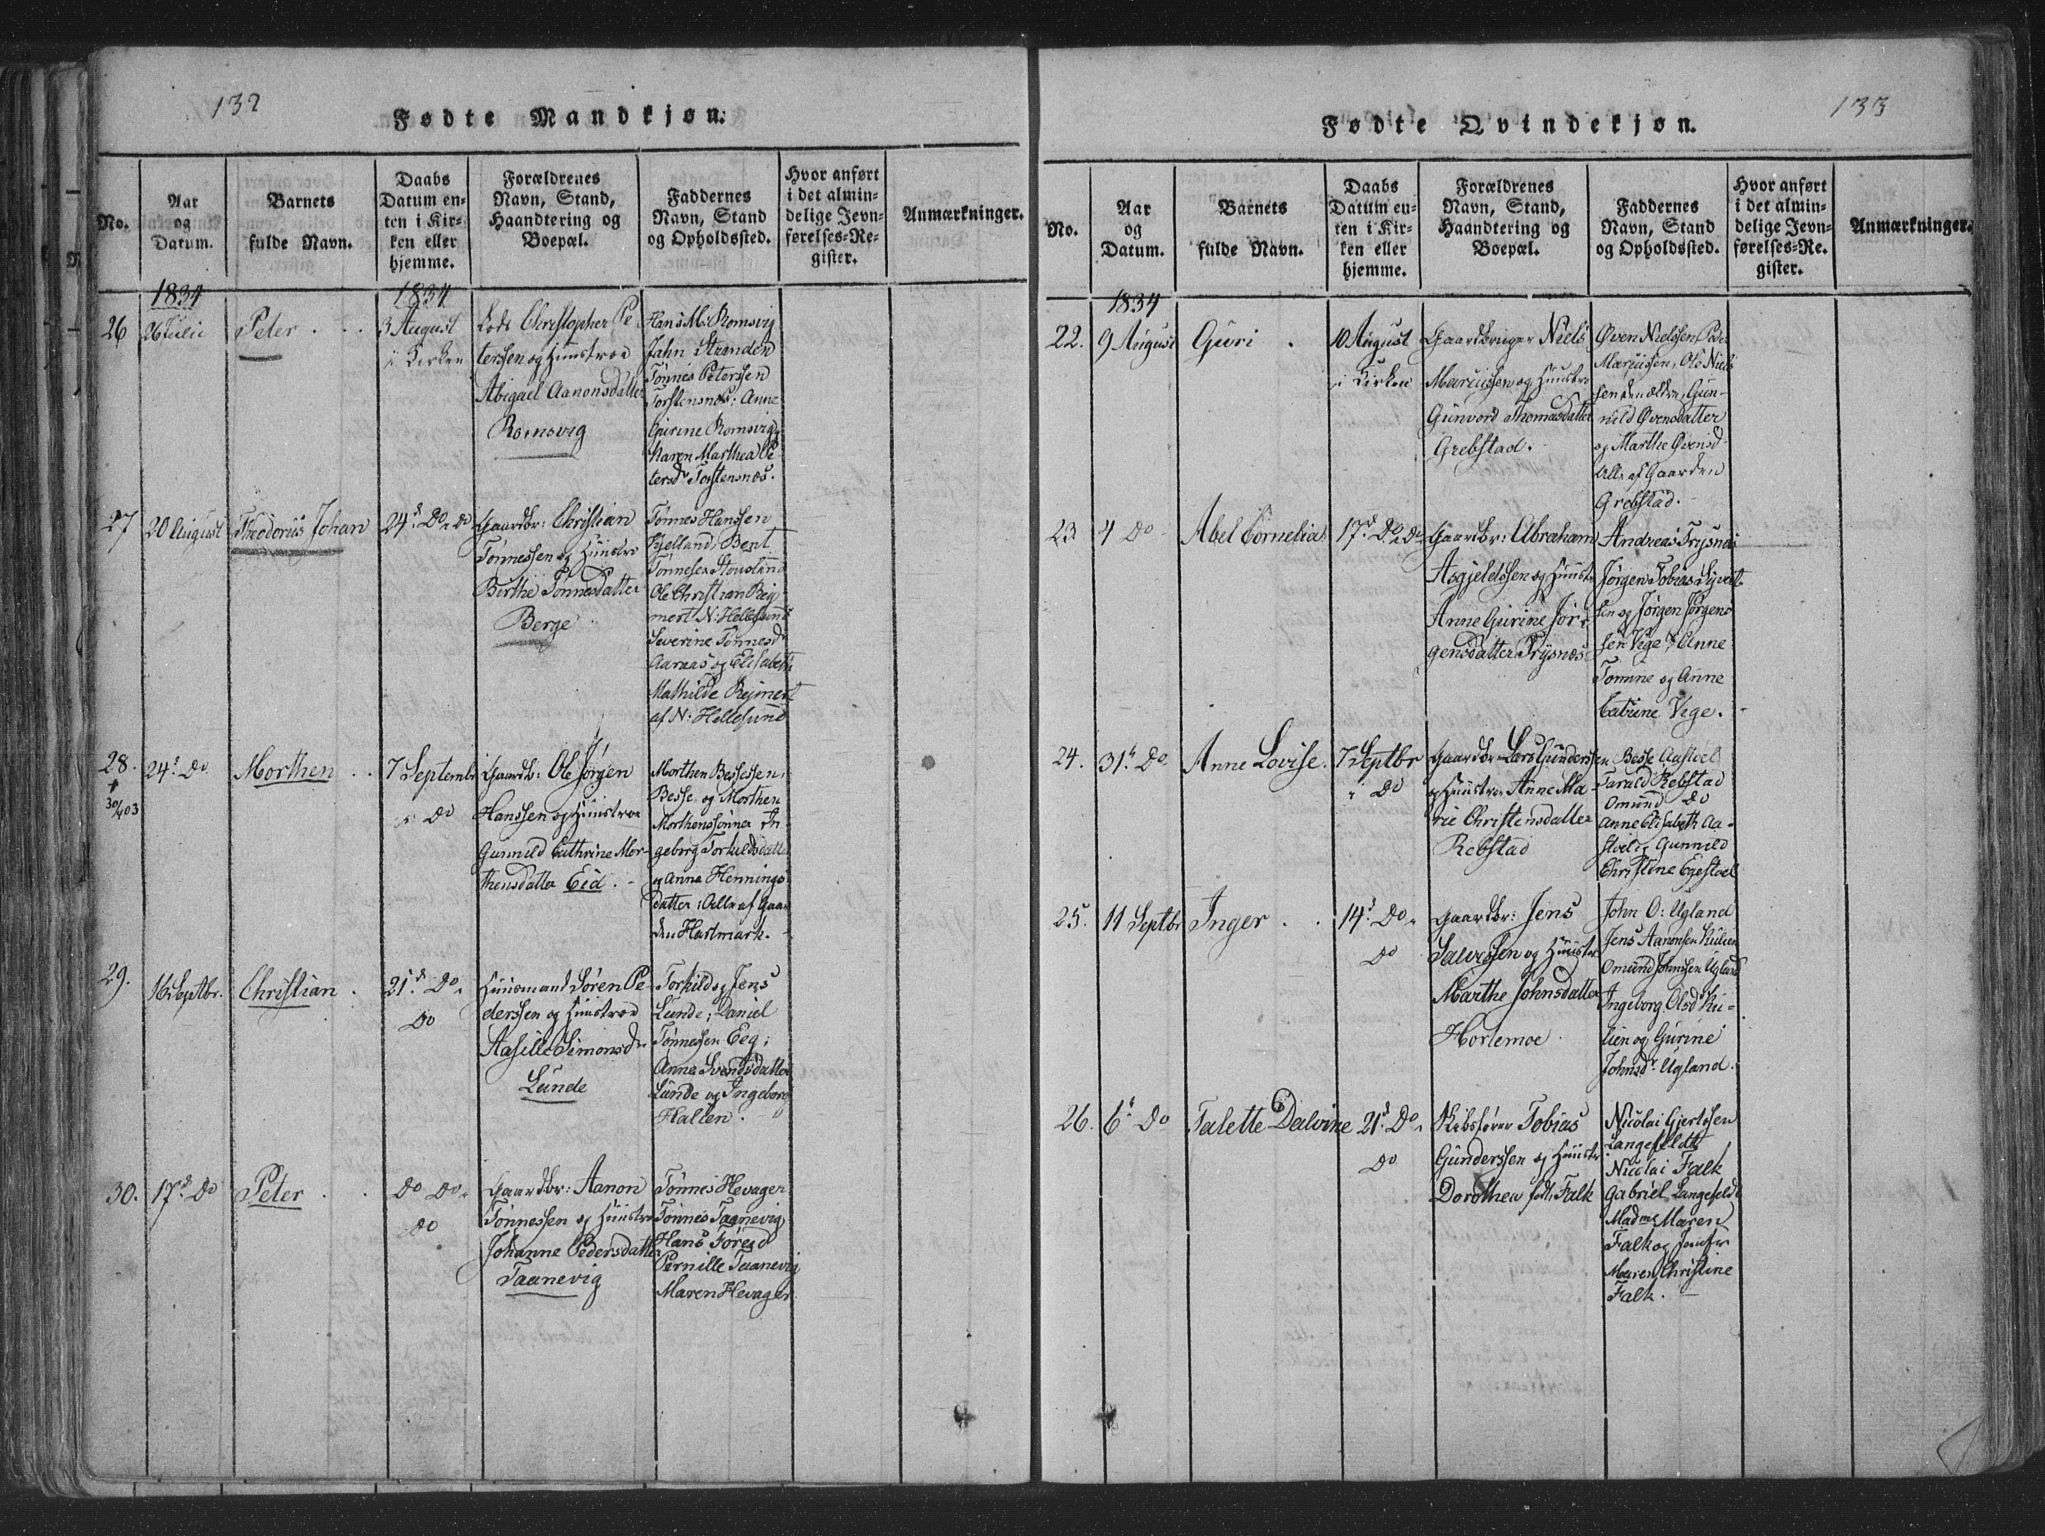 132
Fødte Mandkjøn.
No.
Aar
og
Datum.
Barnets
fulde Navn.
Daabs
Datum en-
ten i Kir-
ken eller
hjemme.
Forældrenes
Navn, Stand,
Haandtering og
Boepæl.
Faddernes
Navn, Stand
og Opholdssted.
Hvor anført
i det almin-
delige Jevn-
førelses-Re-
gister.
Anmærkninger.
1834
1834
26
26 Julii
Peter
3 August
i Kirken
Lods Christopher Pe
terssen og Huustroe
Abigael Aanonsdatter
Romsvig
Hans M: Romsvig
Jahn Stranden
Tønnes Peterssen
Torstensnæs: Anne
Gurine Romsvig
Karen Marthea Pe
tersdr Torstensnæs.
27
20 August
Theodorius Johan
24de Do i Do
Gaardbr: Christian
Tønnessen og Huustro
Berthe Tønnesdatter
Berge
Tønnes Hanssen
Kjelland, Bent
Tønnesen
Ole Christian Rej
mert N: Hellesund
Severine Tønnesdr
Aaraas og Elisabeth
Mathilde Rejmert
af N: Hellesund
28.
+
30/4 03
24de Do
Morthen
7 Septembr
i Do
Gaardbr: Ole Jørgen
Hanssen og Huustroe
Gunnild Cathrine Mor-
thensdatter Eid.
Morthen Bessessen,
Besse og Morthen
Morthenssønner In
geborg Torkildsdatter
og Anna Hennings
datter: Alle af Gaar
den Hartmark.
29.
16 Septbr.
Christian
21de Do i
Do
Huusmand Søren Pe
derssen og Huustroe
Aasille Simonsdr
Lunde
Torkild og Jens
Lunde; Daniel
Tønnessen Eeg;
Anna Svendsdatter
Lunde og Ingeborg
Halten.
30.
17de Do
Peter
Do Do i
Do
Gaardbr: Aanon
Tønnessen og Huustro
Johanne Pedersdatter
Taanevig
Tønnes Hevager
Tønnes Taanevig
Hans Føresd
Pernille Taanevig
Maren Hevager.
133
Fødte Qvindekjøn.
No.
Aar
og
Datum.
Barnets
fulde Navn.
Daabs
Datum en-
ten i Kir-
ken eller
hjemme.
Forældrenes
Navn, Stand,
Haandtering og
Boepæl.
Faddernes
Navn, Stand
og Opholdssted.
Hvor anført
i det almin-
delige Jevn-
førelses-Re-
gister.
Anmærkninger.
1834
22.
9 August
Guri
10 August
i Kirken
Gaardbruger Niels
Mariussen og Huustro
Gunvord Thomasdatter
Grebstad.
Øven Nielssen, Peder
Mariussen, Ole Niels
sen den ældre, Gun-
nild Øvensdatter
og Marthe Øvensd
Alle af Gaarden
Grebstad.
23.
4 Do
Abel Cornelia
17de Do i Do
Gaardbr: Abraham
Asgjeldssen og Huustr
Anne Gurine Jør-
gensdatter Trysnæs
Andreas Trysnæs
Jørgen Tobias Syvert
sen og Jørgen Jørgens
sen Vege; Anne
Tomine og Anne
Catrine Vege.
24.
31te Do
Anne Lovise.
7 Septbr
i Do
Gaardbr Lars Gunderssen
og Huustroe Anne Ma
rie Christensdatter
Rebstad
Besse Aastvel
Tarald Rebstad
Omund Do
Anne Elisabeth Aa-
stvelt, Gunnild
Christine Egestvel
25.
11 Septbr
Inger
14de Do i
Do
Gaardbr: Jens
Salvessen og Huustr
Marthe Johnsdatter
Hortemoe
John O: Ugland
Jens Aanonsen Kulien
Omund Johnssen Ugland
Ingeborg Olsdr Ku-
lien og Gurine
Johnsdr Ugland.
26.
6te Do
Talette Dalvine
21de Do i
Do
Skibsfører Tobias
Gunderssen og Huustr
Dorothea født Falk
Nicolai Gjertssen
Langefeldt
Nicolai Falk
Gabriel Langefeldt
Madme Maren
Falk og Jomfr
Maren Christine
Falk.